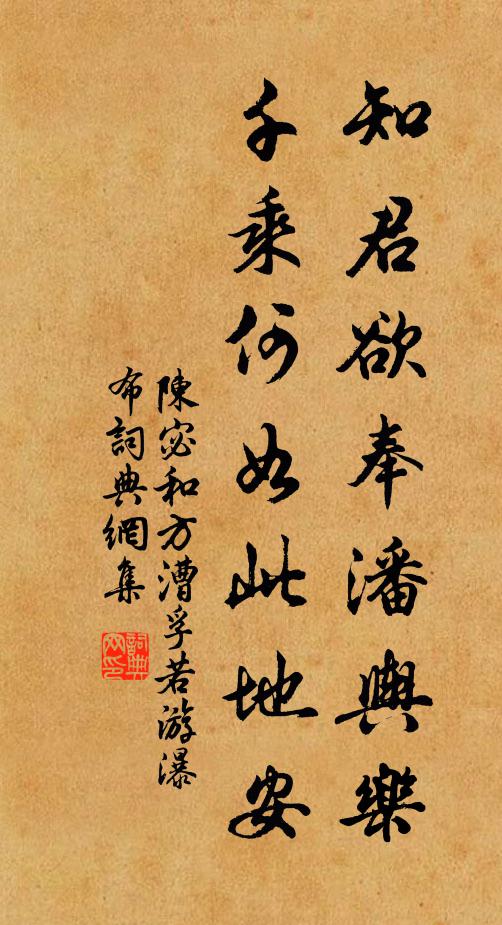 知君欲奉潘輿樂
千乘何如此地安
陳宓和方漕孚若游瀑
布詞典網集
詞典網印